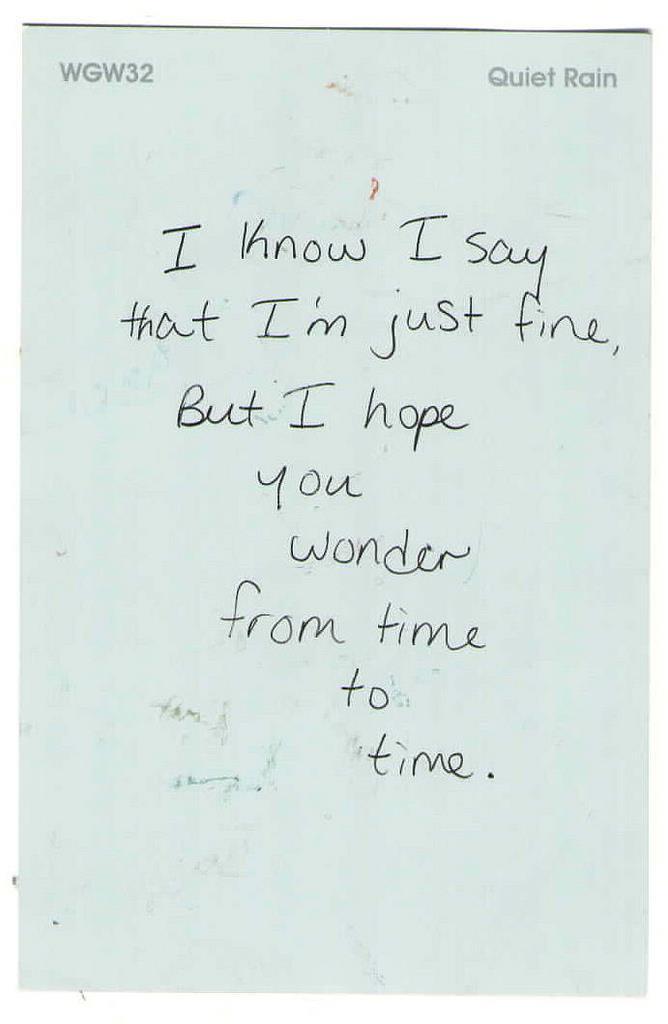 WGW32 Quiet Rain
I know I say
that I'm just fine,
But I hope
you
wonder
from time
to
time.